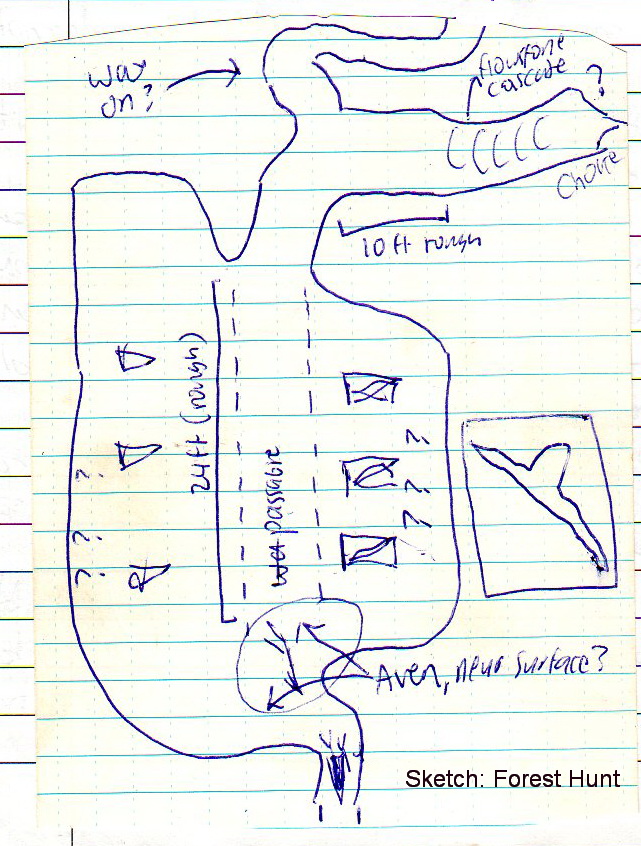 way
on?
flowstone
cascade
?
Choke
10 ft rough
24ft (rough)
passable
?
?
?
?
?
?
Aven, near surface?
Sketch: Forest Hunt